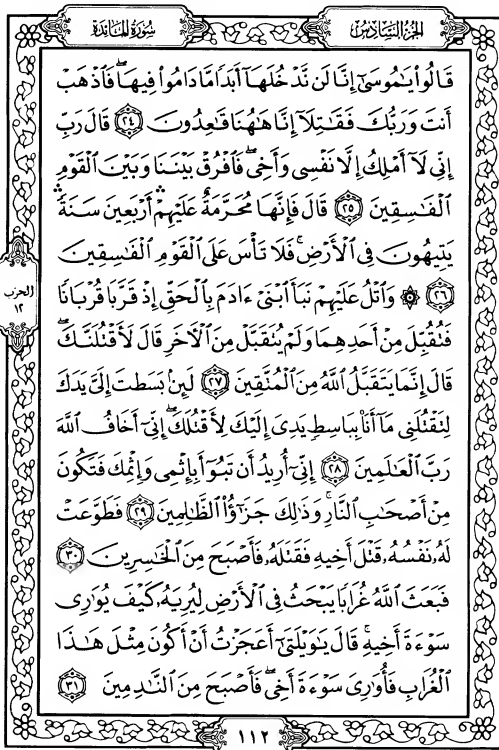 سُورَةُ المَائِدَة
الجُزْءُ السَّادِسُ
قَالُوا۟ يَـٰمُوسَىٰٓ إِنَّا لَن نَّدْخُلَهَآ أَبَدًا مَّا دَامُوا۟ فِيهَا ۖ فَٱذْهَبْ
أَنتَ وَرَبُّكَ فَقَـٰتِلَآ إِنَّا هَـٰهُنَا قَـٰعِدُونَ ٢٤ قَالَ رَبِّ
إِنِّى لَآ أَمْلِكُ إِلَّا نَفْسِى وَأَخِى ۖ فَٱفْرُقْ بَيْنَنَا وَبَيْنَ ٱلْقَوْمِ
ٱلْفَـٰسِقِينَ ٢٥ قَالَ فَإِنَّهَا مُحَرَّمَةٌ عَلَيْهِمْ ۛ أَرْبَعِينَ سَنَةً ۛ
يَتِيهُونَ فِى ٱلْأَرْضِ ۚ فَلَا تَأْسَ عَلَى ٱلْقَوْمِ ٱلْفَـٰسِقِينَ
٢٦ ۞ وَٱتْلُ عَلَيْهِمْ نَبَأَ ٱبْنَىْ ءَادَمَ بِٱلْحَقِّ إِذْ قَرَّبَا قُرْبَانًا
فَتُقُبِّلَ مِنْ أَحَدِهِمَا وَلَمْ يُتَقَبَّلْ مِنَ ٱلْـَٔاخَرِ قَالَ لَأَقْتُلَنَّكَ ۖ
قَالَ إِنَّمَا يَتَقَبَّلُ ٱللَّهُ مِنَ ٱلْمُتَّقِينَ ٢٧ لَئِنۢ بَسَطتَ إِلَىَّ يَدَكَ
لِتَقْتُلَنِى مَآ أَنَا۠ بِبَاسِطٍ يَدِىَ إِلَيْكَ لِأَقْتُلَكَ ۖ إِنِّىٓ أَخَافُ ٱللَّهَ
رَبَّ ٱلْعَـٰلَمِينَ ٢٨ إِنِّىٓ أُرِيدُ أَن تَبُوٓأَ بِإِثْمِى وَإِثْمِكَ فَتَكُونَ
مِنْ أَصْحَـٰبِ ٱلنَّارِ ۚ وَذَٰلِكَ جَزَٰٓؤُا۟ ٱلظَّـٰلِمِينَ ٢٩ فَطَوَّعَتْ
لَهُۥ نَفْسُهُۥ قَتْلَ أَخِيهِ فَقَتَلَهُۥ فَأَصْبَحَ مِنَ ٱلْخَـٰسِرِينَ ٣٠
فَبَعَثَ ٱللَّهُ غُرَابًا يَبْحَثُ فِى ٱلْأَرْضِ لِيُرِيَهُۥ كَيْفَ يُوَٰرِى
سَوْءَةَ أَخِيهِ ۚ قَالَ يَـٰوَيْلَتَىٰٓ أَعَجَزْتُ أَنْ أَكُونَ مِثْلَ هَـٰذَا
ٱلْغُرَابِ فَأُوَٰرِىَ سَوْءَةَ أَخِى ۖ فَأَصْبَحَ مِنَ ٱلنَّـٰدِمِينَ ٣١
الحزب
١٢
١١٢